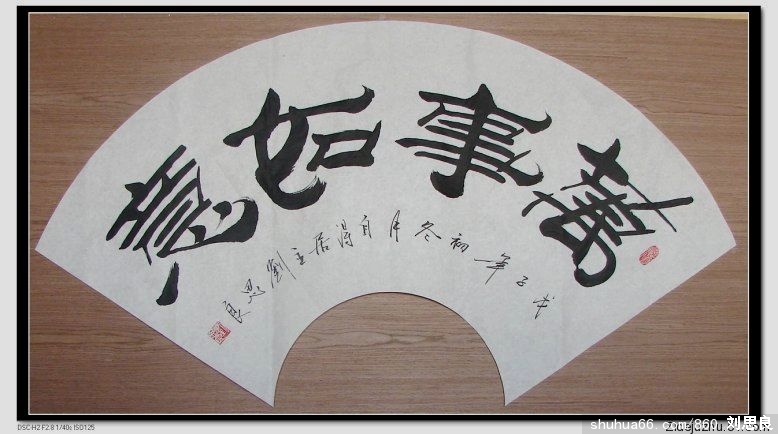 萬事如意
戊子年初冬月自得居主劉思良
DSC-H2 F2.8 1/40s ISO125
shuhua66.com/860 刘思良